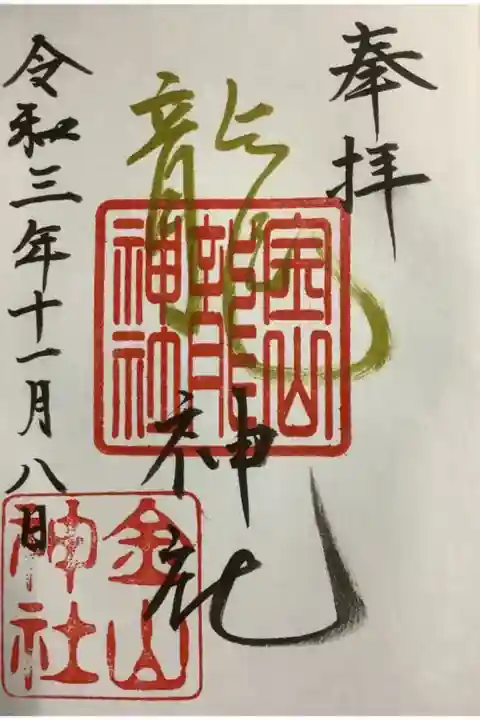 奉拝
龍
神社
金山
龍
神社
令和三年十一月八日
金山
神社